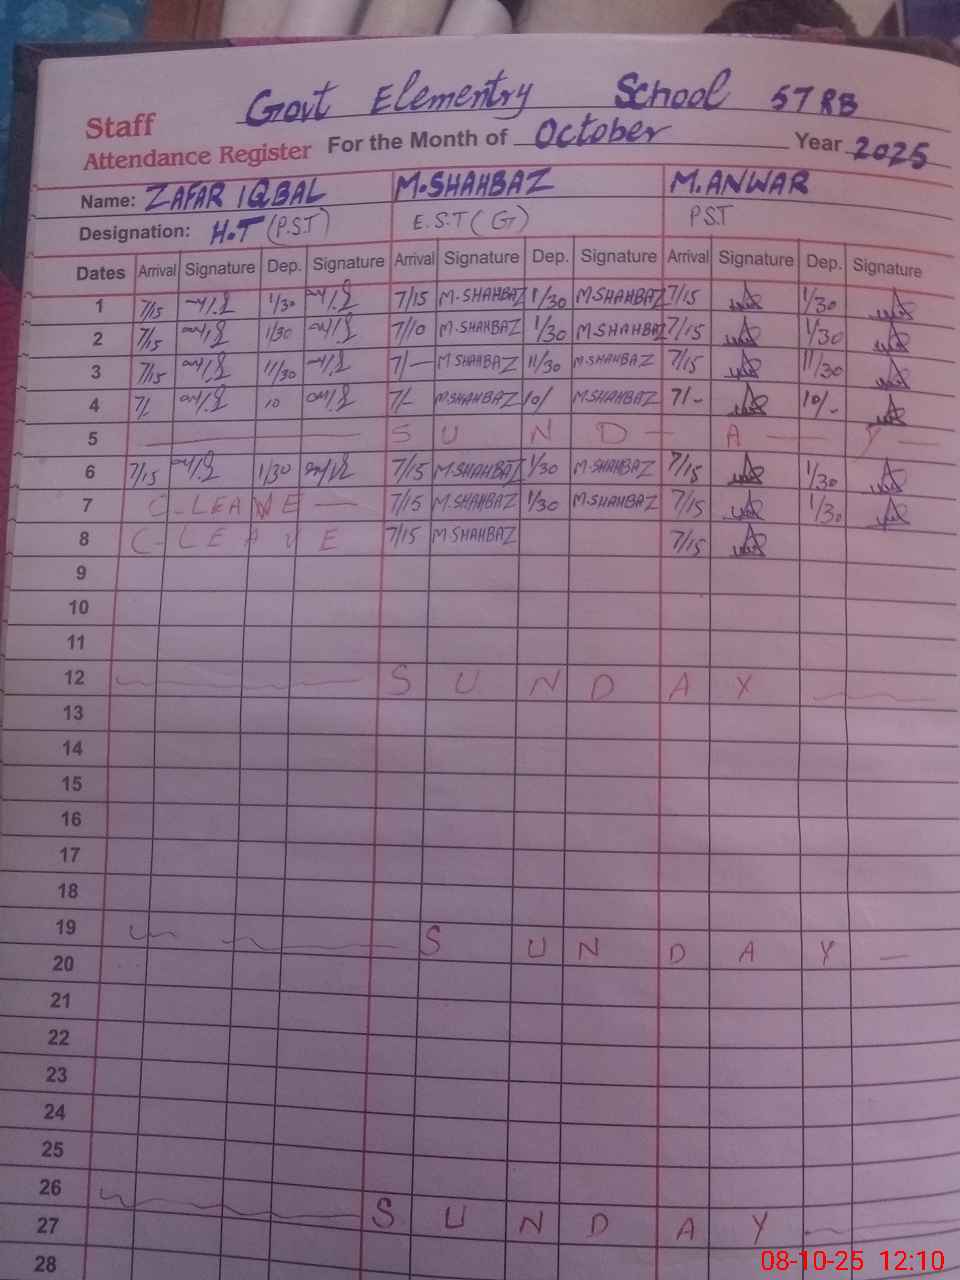 Govt Elementry School 57 RB
Staff
Attendance Register For the Month of October Year 2025
Name: ZAFAR IQBAL M.SHAHBAZ M.ANWAR
Designation: H.T (P.S.T) E.S.T (G) P.S.T
Dates Arrival Signature Dep. Signature Arrival Signature Dep. Signature Arrival Signature Dep. Signature
1 7/15 1/30 7/15 M.SHAHBAZ 1/30 M.SHAHBAZ 7/15 1/30
2 7/15 1/30 7/10 M.SHAHBAZ 1/30 M.SHAHBAZ 7/15 1/30
3 7/15 11/30 7/— M.SHAHBAZ 11/30 M.SHAHBAZ 7/15 11/30
4 7/- 10 7/- M.SHAHBAZ 10/ M.SHAHBAZ 7/- 10/-
5 SUNDAY
6 7/15 1/30 7/15 M.SHAHBAZ 1/30 M.SHAHBAZ 7/15 1/30
7 C-LEAVE 7/15 M.SHAHBAZ 1/30 M.SHAHBAZ 7/15 1/30
8 C-LEAVE 7/15 M.SHAHBAZ 7/15
9
10
11
12 SUNDAY
13
14
15
16
17
18
19 SUNDAY
20
21
22
23
24
25
26 SUNDAY
27
28
08-10-25 12:10